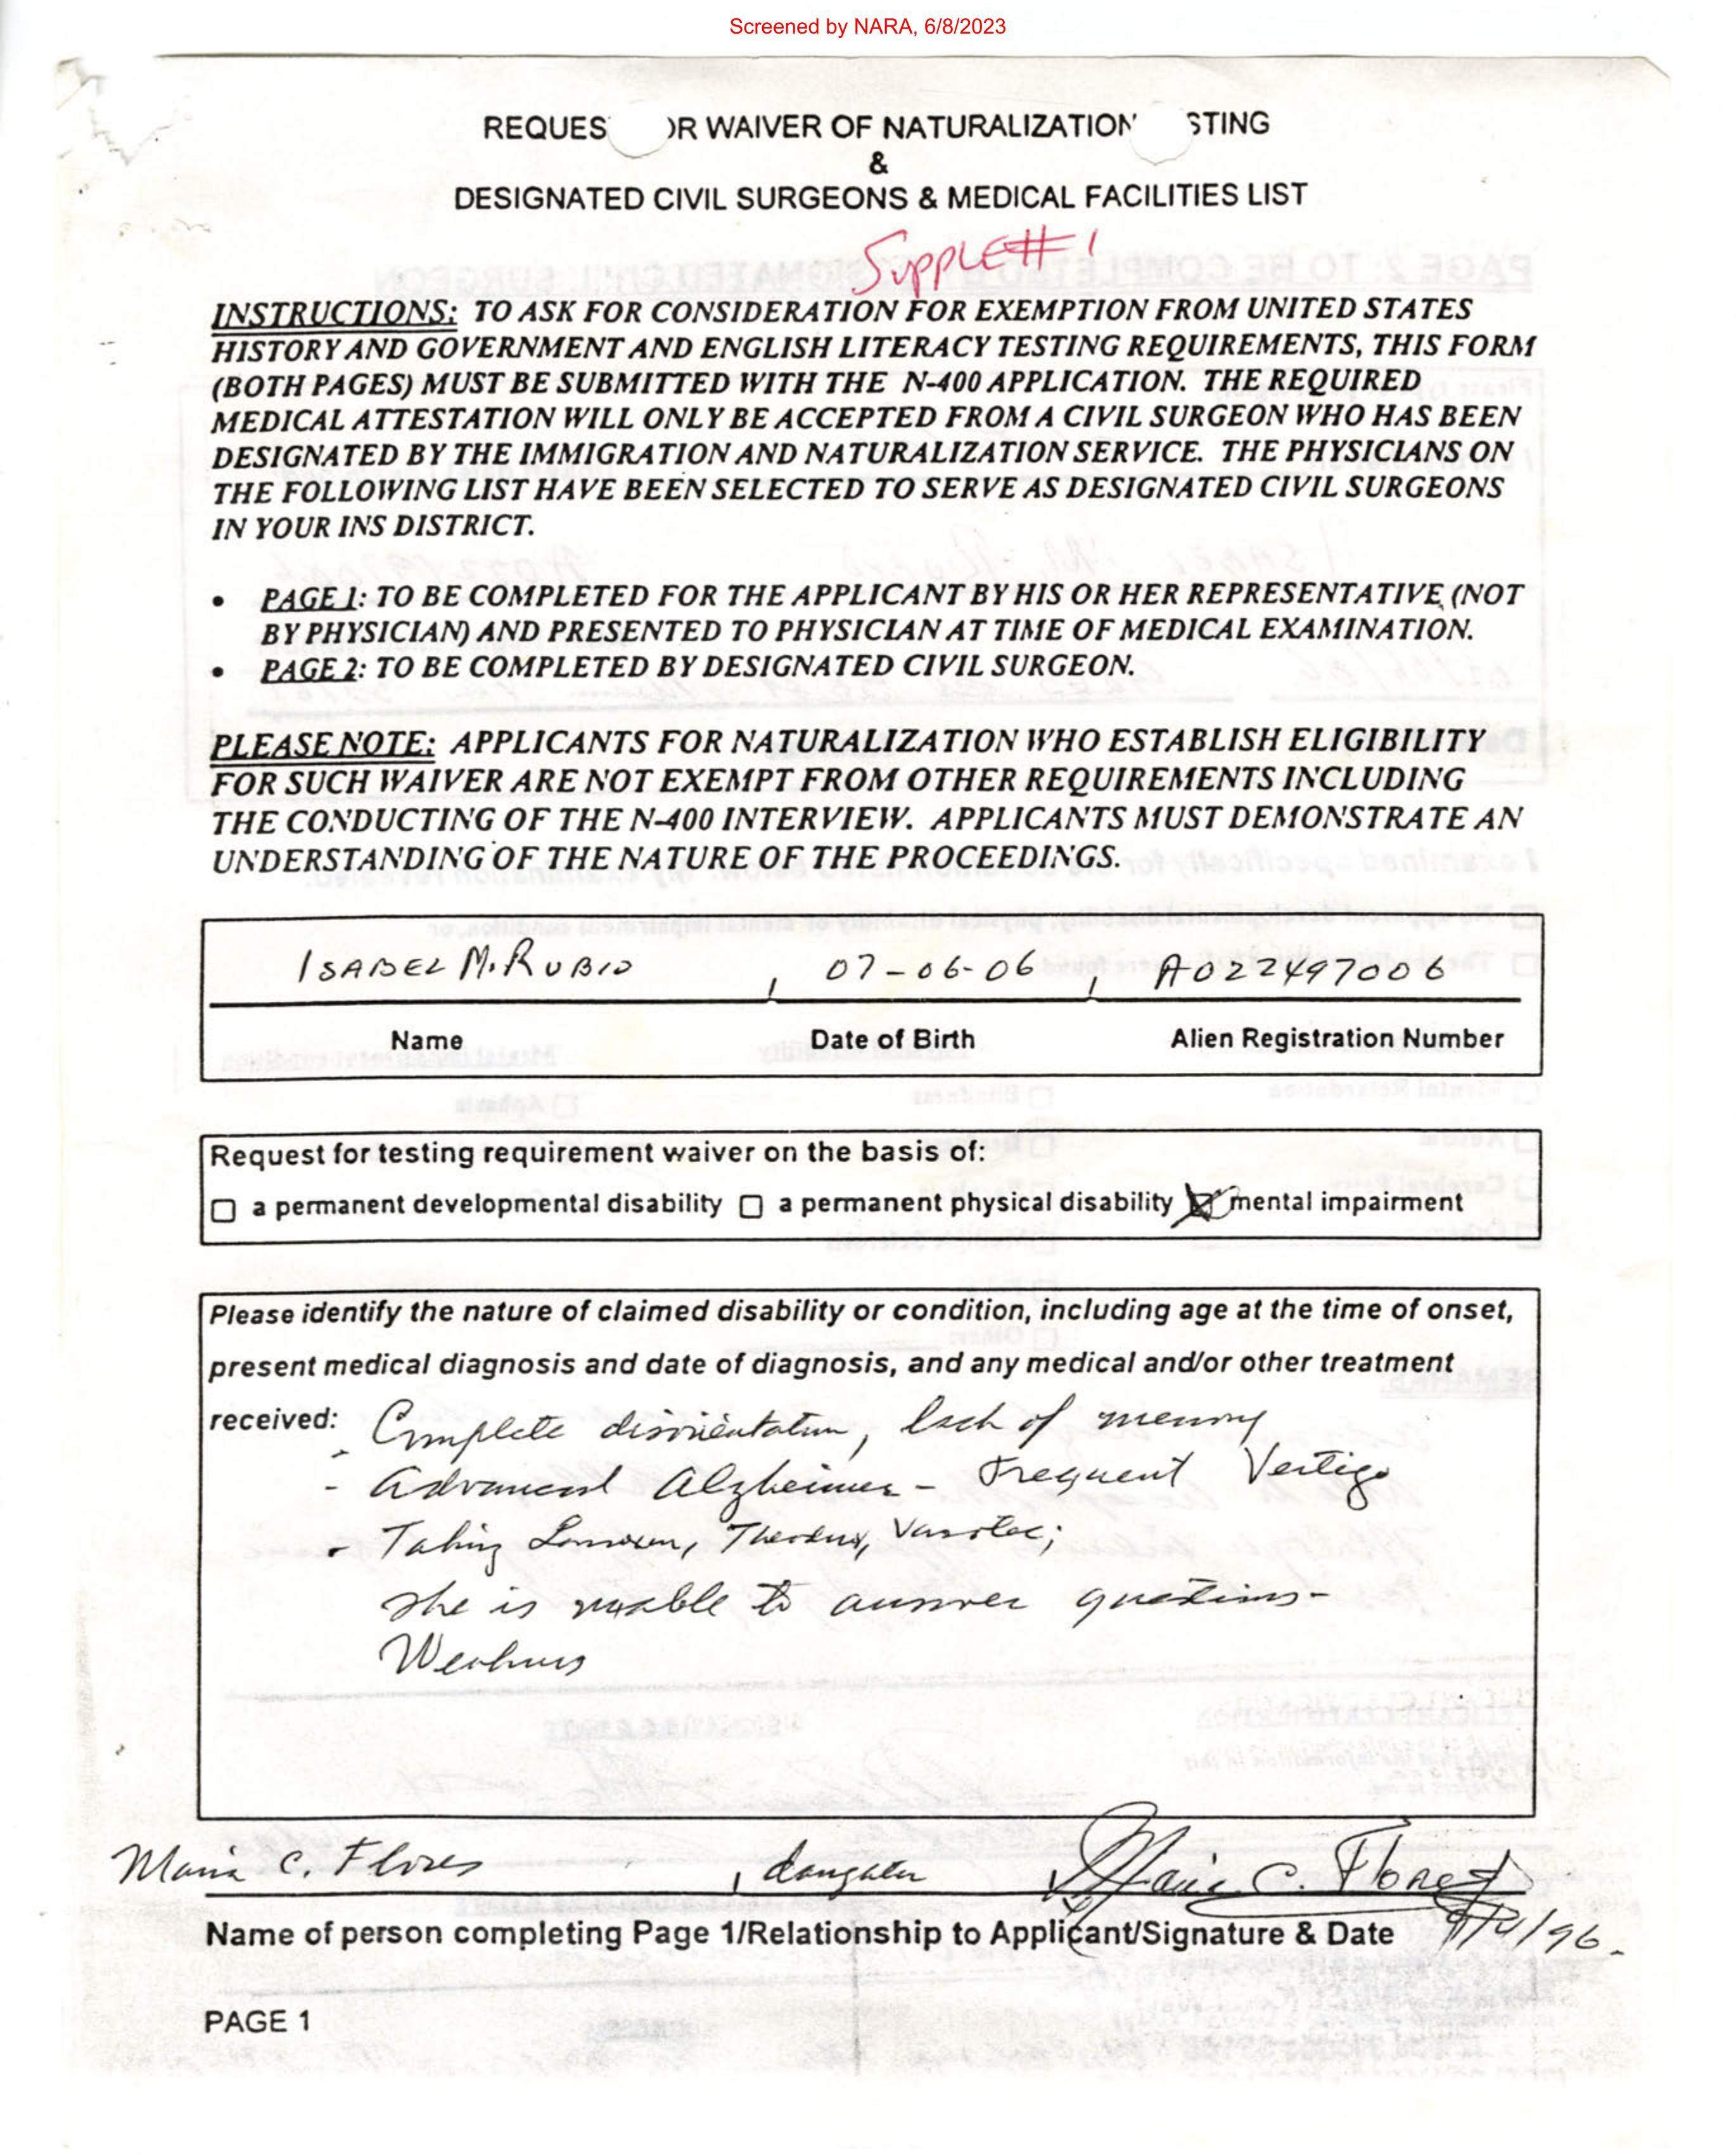 Screened by NARA, 6/8/2023
REQUES OR WAIVER OF NATURALIZATION STING
&
DESIGNATED CIVIL SURGEONS & MEDICAL FACILITIES LIST
SUPPLE # 1
INSTRUCTIONS: TO ASK FOR CONSIDERATION FOR EXEMPTION FROM UNITED STATES
HISTORY AND GOVERNMENT AND ENGLISH LITERACY TESTING REQUIREMENTS, THIS FORM
(BOTH PAGES) MUST BE SUBMITTED WITH THE N-400 APPLICATION. THE REQUIRED
MEDICAL ATTESTATION WILL ONLY BE ACCEPTED FROM A CIVIL SURGEON WHO HAS BEEN
DESIGNATED BY THE IMMIGRATION AND NATURALIZATION SERVICE. THE PHYSICIANS ON
THE FOLLOWING LIST HAVE BEEN SELECTED TO SERVE AS DESIGNATED CIVIL SURGEONS
IN YOUR INS DISTRICT.
• PAGE 1: TO BE COMPLETED FOR THE APPLICANT BY HIS OR HER REPRESENTATIVE (NOT
BY PHYSICIAN) AND PRESENTED TO PHYSICIAN AT TIME OF MEDICAL EXAMINATION.
• PAGE 2: TO BE COMPLETED BY DESIGNATED CIVIL SURGEON.
PLEASE NOTE: APPLICANTS FOR NATURALIZATION WHO ESTABLISH ELIGIBILITY
FOR SUCH WAIVER ARE NOT EXEMPT FROM OTHER REQUIREMENTS INCLUDING
THE CONDUCTING OF THE N-400 INTERVIEW. APPLICANTS MUST DEMONSTRATE AN
UNDERSTANDING OF THE NATURE OF THE PROCEEDINGS.
ISABEL M. RUBIO , 07-06-06 , A022497006
Name Date of Birth Alien Registration Number
Request for testing requirement waiver on the basis of:
☐ a permanent developmental disability ☐ a permanent physical disability ☒ mental impairment
Please identify the nature of claimed disability or condition, including age at the time of onset,
present medical diagnosis and date of diagnosis, and any medical and/or other treatment
received: Complete disorientation, lack of memory
- Advanced Alzheimer - Frequent Vertigo
- Taking Vasotec;
She is unable to answer questions -
Weakness
Maria C. Flores , daughter Maria C. Flores
Name of person completing Page 1/Relationship to Applicant/Signature & Date
PAGE 1